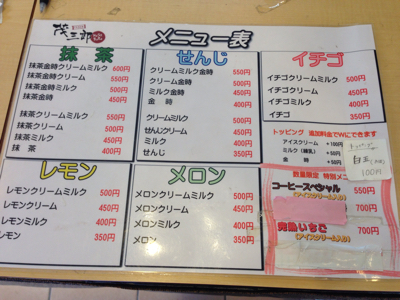 茂三郎
メニュー表
抹茶
抹茶金時クリームミルク 600円
抹茶金時クリーム 550円
抹茶金時ミルク 500円
抹茶金時 450円
抹茶クリームミルク 550円
抹茶クリーム 500円
抹茶ミルク 450円
抹茶 400円
せんじ
クリームミルク金時 550円
クリーム金時 500円
ミルク金時 450円
金時 400円
クリームミルク 500円
せんじクリーム 450円
ミルク 400円
せんじ 350円
イチゴ
イチゴクリームミルク 500円
イチゴクリーム 450円
イチゴミルク 400円
イチゴ 350円
トッピング 追加料金でWしできます
アイスクリーム +100円
ミルク(練乳) +50円
金時 +50円
トッピング
白玉
100円
レモン
レモンクリームミルク 500円
レモンクリーム 450円
レモンミルク 400円
レモン 350円
メロン
メロンクリームミルク 500円
メロンクリーム 450円
メロンミルク 400円
メロン 350円
数量限定 特別メニ
コーヒースペシャル 550円
(アイスクリーム入り)
700円
完熟いちご 700円
(アイスクリーム入り)